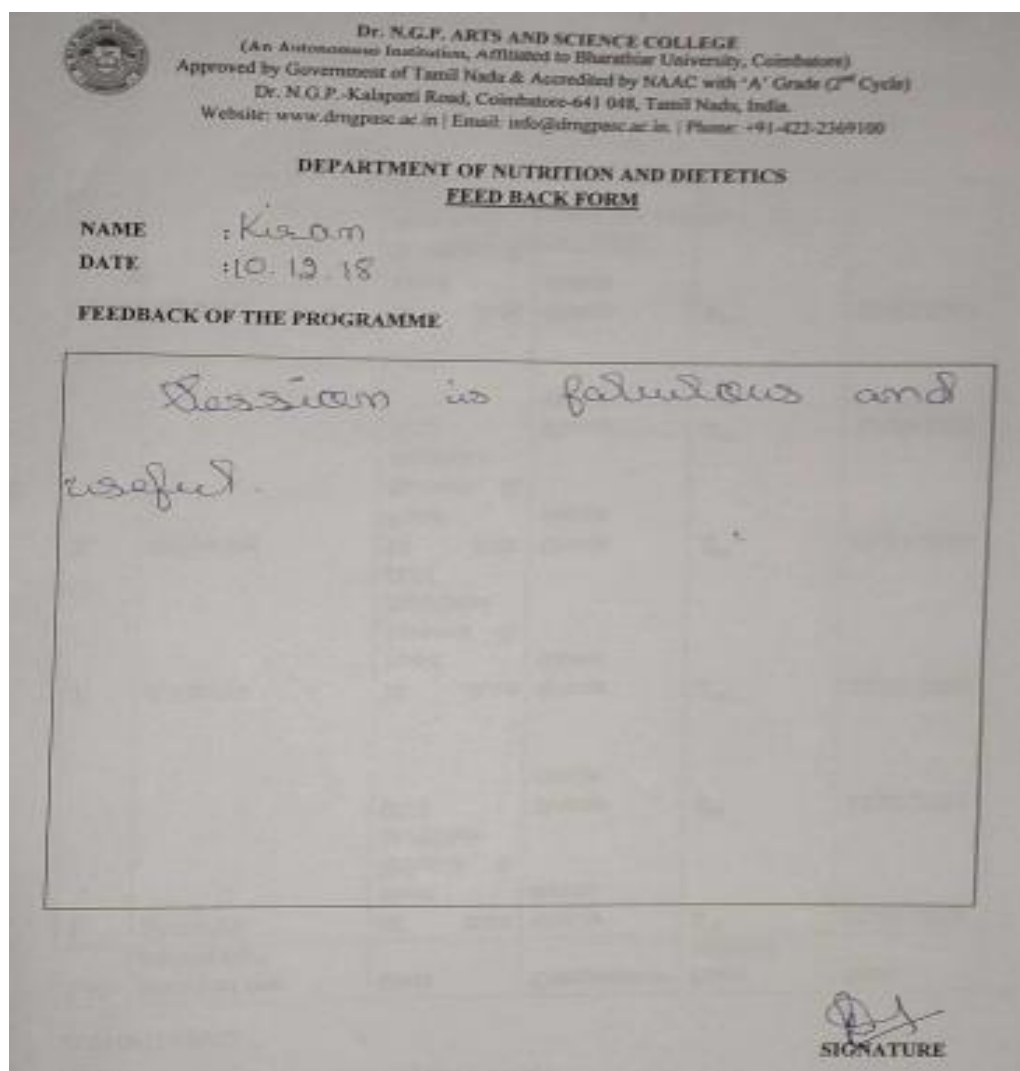 Dr. N.G.P. ARTS AND SCIENCE COLLEGE
(An Autonomous Institution, Affiliated to Bharathiar University, Coimbatore)
Approved by Government of Tamil Nadu & Accredited by NAAC with 'A' Grade (2nd Cycle)
Dr. N.G.P.-Kalapatti Road, Coimbatore-641 048, Tamil Nadu, India.
Website: www.drngpasc.ac.in | Email: info@drngpasc.ac.in. | Phone: +91-422-2369100
DEPARTMENT OF NUTRITION AND DIETETICS
FEED BACK FORM
NAME : Kiran
DATE : 10.12.18
FEEDBACK OF THE PROGRAMME
Session is fabulous and
useful.
SIGNATURE